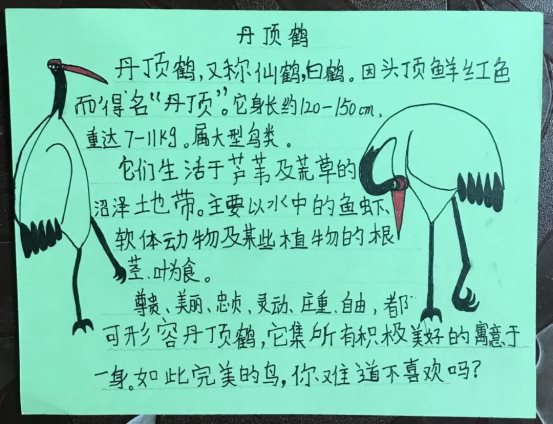 丹顶鹤
丹顶鹤,又称仙鹤,白鹤。因头顶鲜红色
而得名“丹顶”。它身长约120-150cm,
重达7-11kg。属大型鸟类。
它们生活于芦苇及荒草的
沼泽土地带。主要以水中的鱼虾、
软体动物及某些植物的根
茎、叶为食。
尊贵、美丽、忠贞、灵动、庄重、自由,都
可形容丹顶鹤,它集所有积极美好的寓意于
一身。如此完美的鸟,你难道不喜欢吗?